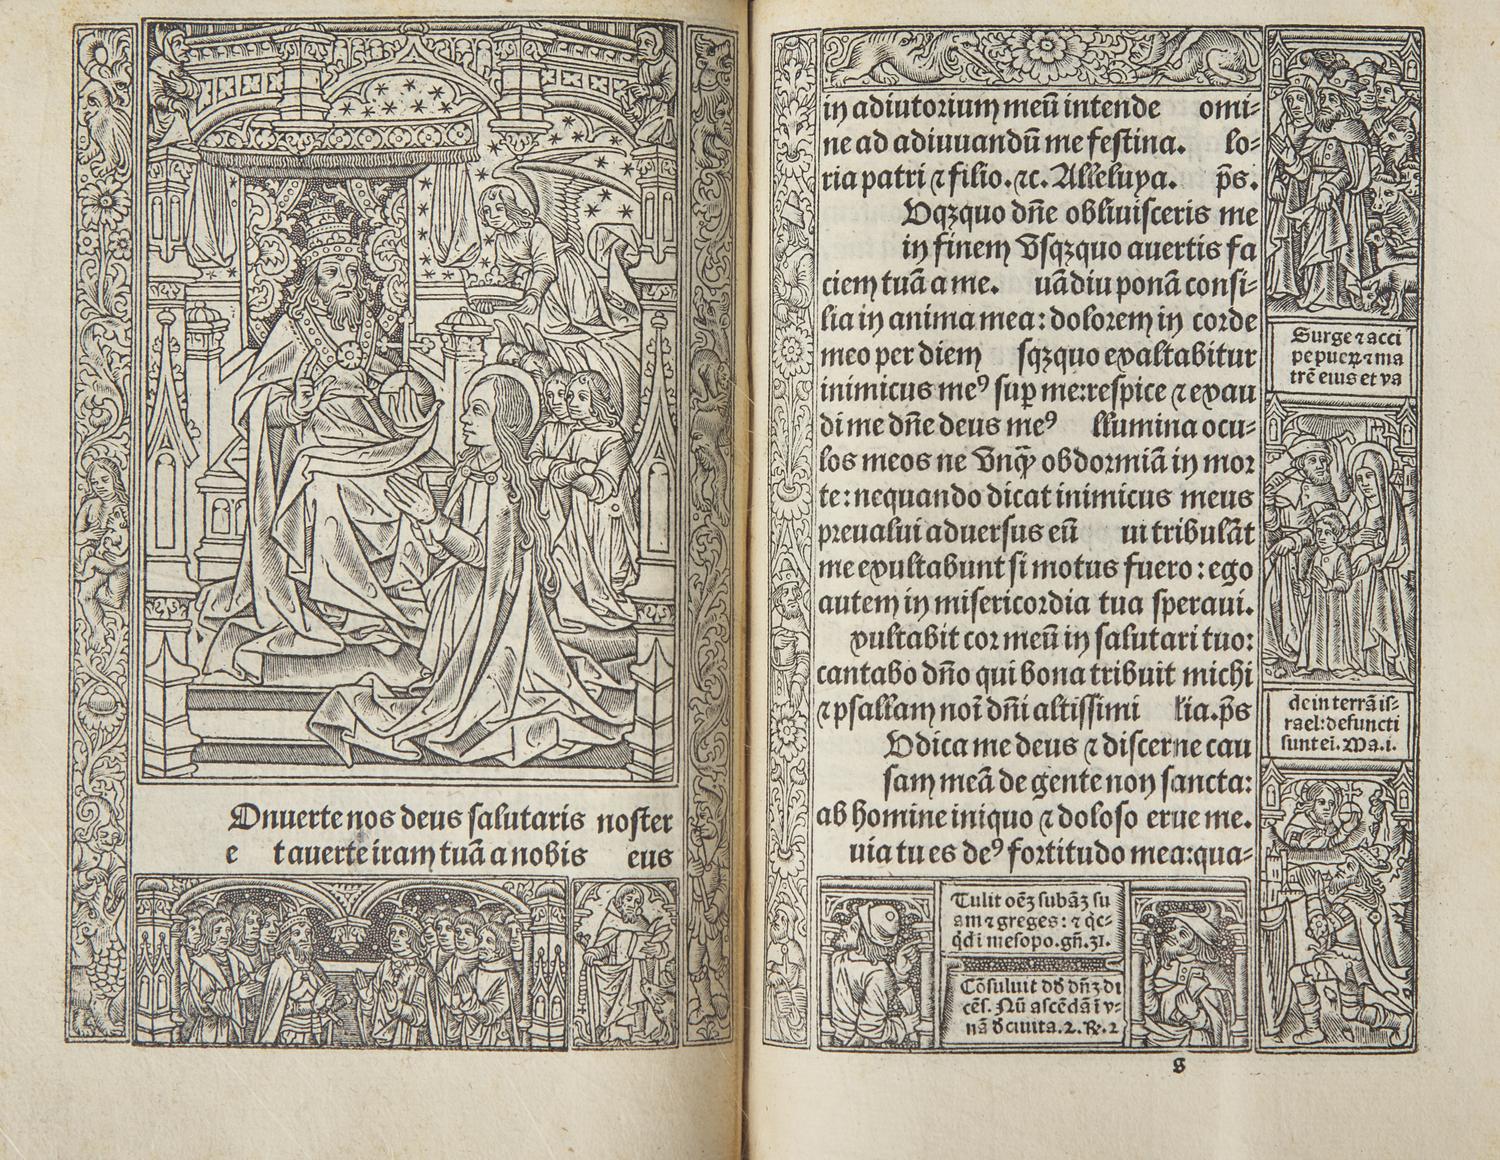 Onuerte nos deus salutaris noster
e tauerte iram tuā a nobis eus
in adiutorium meū intende omi-
ne ad adiuuandū me festina. lo-
ria patri ⁊ filio. ⁊c. Alleluya. p̄s.
Vqꝫquo dn̄e obliuisceris me
in finem Vsqꝫquo auertis fa
ciem tuā a me. uādiu ponā consi-
lia in anima mea: dolorem in corde
meo per diem sqꝫquo exaltabitur
inimicus meꝰ suꝑ me: respice ⁊ exau
di me dn̄e deus meꝰ llumina ocu-
los meos ne Vnqꝫ̄ obdormiā in mor
te: nequando dicat inimicus meus
preualui aduersus eū ui tribulāt
me exultabunt si motus fuero: ego
autem in misericordia tua speraui.
xultabit cor meū in salutari tuo:
cantabo dn̄o qui bona tribuit michi
⁊ psallam noī dn̄i altissimi lia. p̄s
Vdica me deus ⁊ discerne cau
sam meā de gente non sancta:
ab homine iniquo ⁊ doloso erue me.
uia tu es deꝰ fortitudo mea: qua-
Surge ⁊ acci
pe pueꝝ ⁊ ma
trē eius et va
de in terrā is-
rael: defuncti
sunt ei. Ma. i.
Tulit oēꝫ subāꝫ su
am ⁊ greges: ⁊ qc-
qd i mesopo. gn̄. 31.
Cōsuluit dd dn̄ꝫ di
cēs. Nū ascēdā ī v-
nā d ciuita. 2. R. 2
g